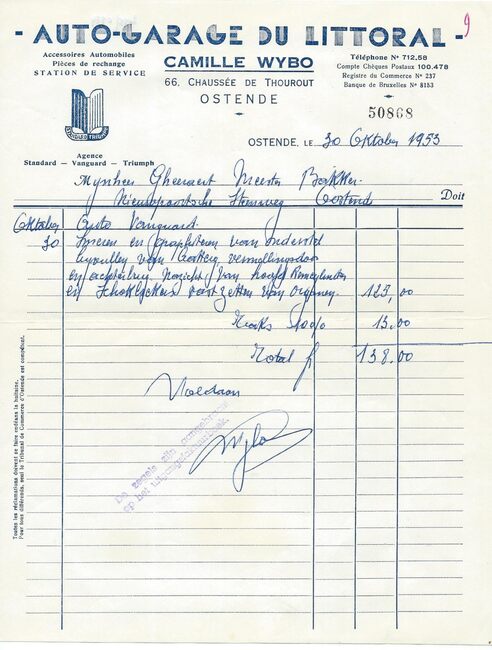 - AUTO-GARAGE DU LITTORAL -
9
Accessoires Automobiles
Pièces de rechange
STATION DE SERVICE
CAMILLE WYBO
66, CHAUSSÉE DE THOUROUT
OSTENDE
Téléphone N° 712.58
Compte Chèques Postaux 100.478
Registre du Commerce N° 237
Banque de Bruxelles N° 8153
50868
STANDARD TRIUMPH
OSTENDE, LE 30 Oktober 1953
Agence
Standard — Vanguard — Triumph
Mynheer Gheeraert Meester Bakker
Nieuwpoortsche Steenweg Oostend
Doit
Oktober Auto Vanguard
30 Smeren en van onderstel
en van hoofd
en 125,00
Taks 10% 13.00
Total fr 138.00
Voldaan
Wybo
De zegels zijn aangebracht
op het
Toutes les réclamations doivent se faire endéans la huitaine.
Pour tous différends, seul le Tribunal de Commerce d'Ostende est compétent.